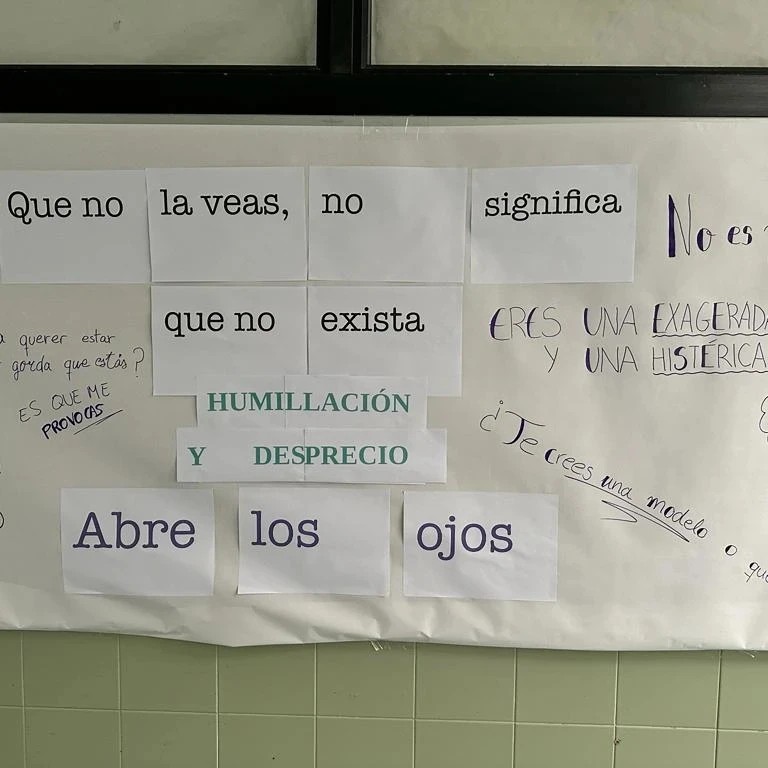 Que no la veas, no significa
que no exista
HUMILLACIÓN
Y DESPRECIO
Abre los ojos
querer estar
gorda que estás?
ES QUE ME
PROVOCAS
No es
ERES UNA EXAGERADA
Y UNA HISTÉRICA
¿Te crees una modelo o qué